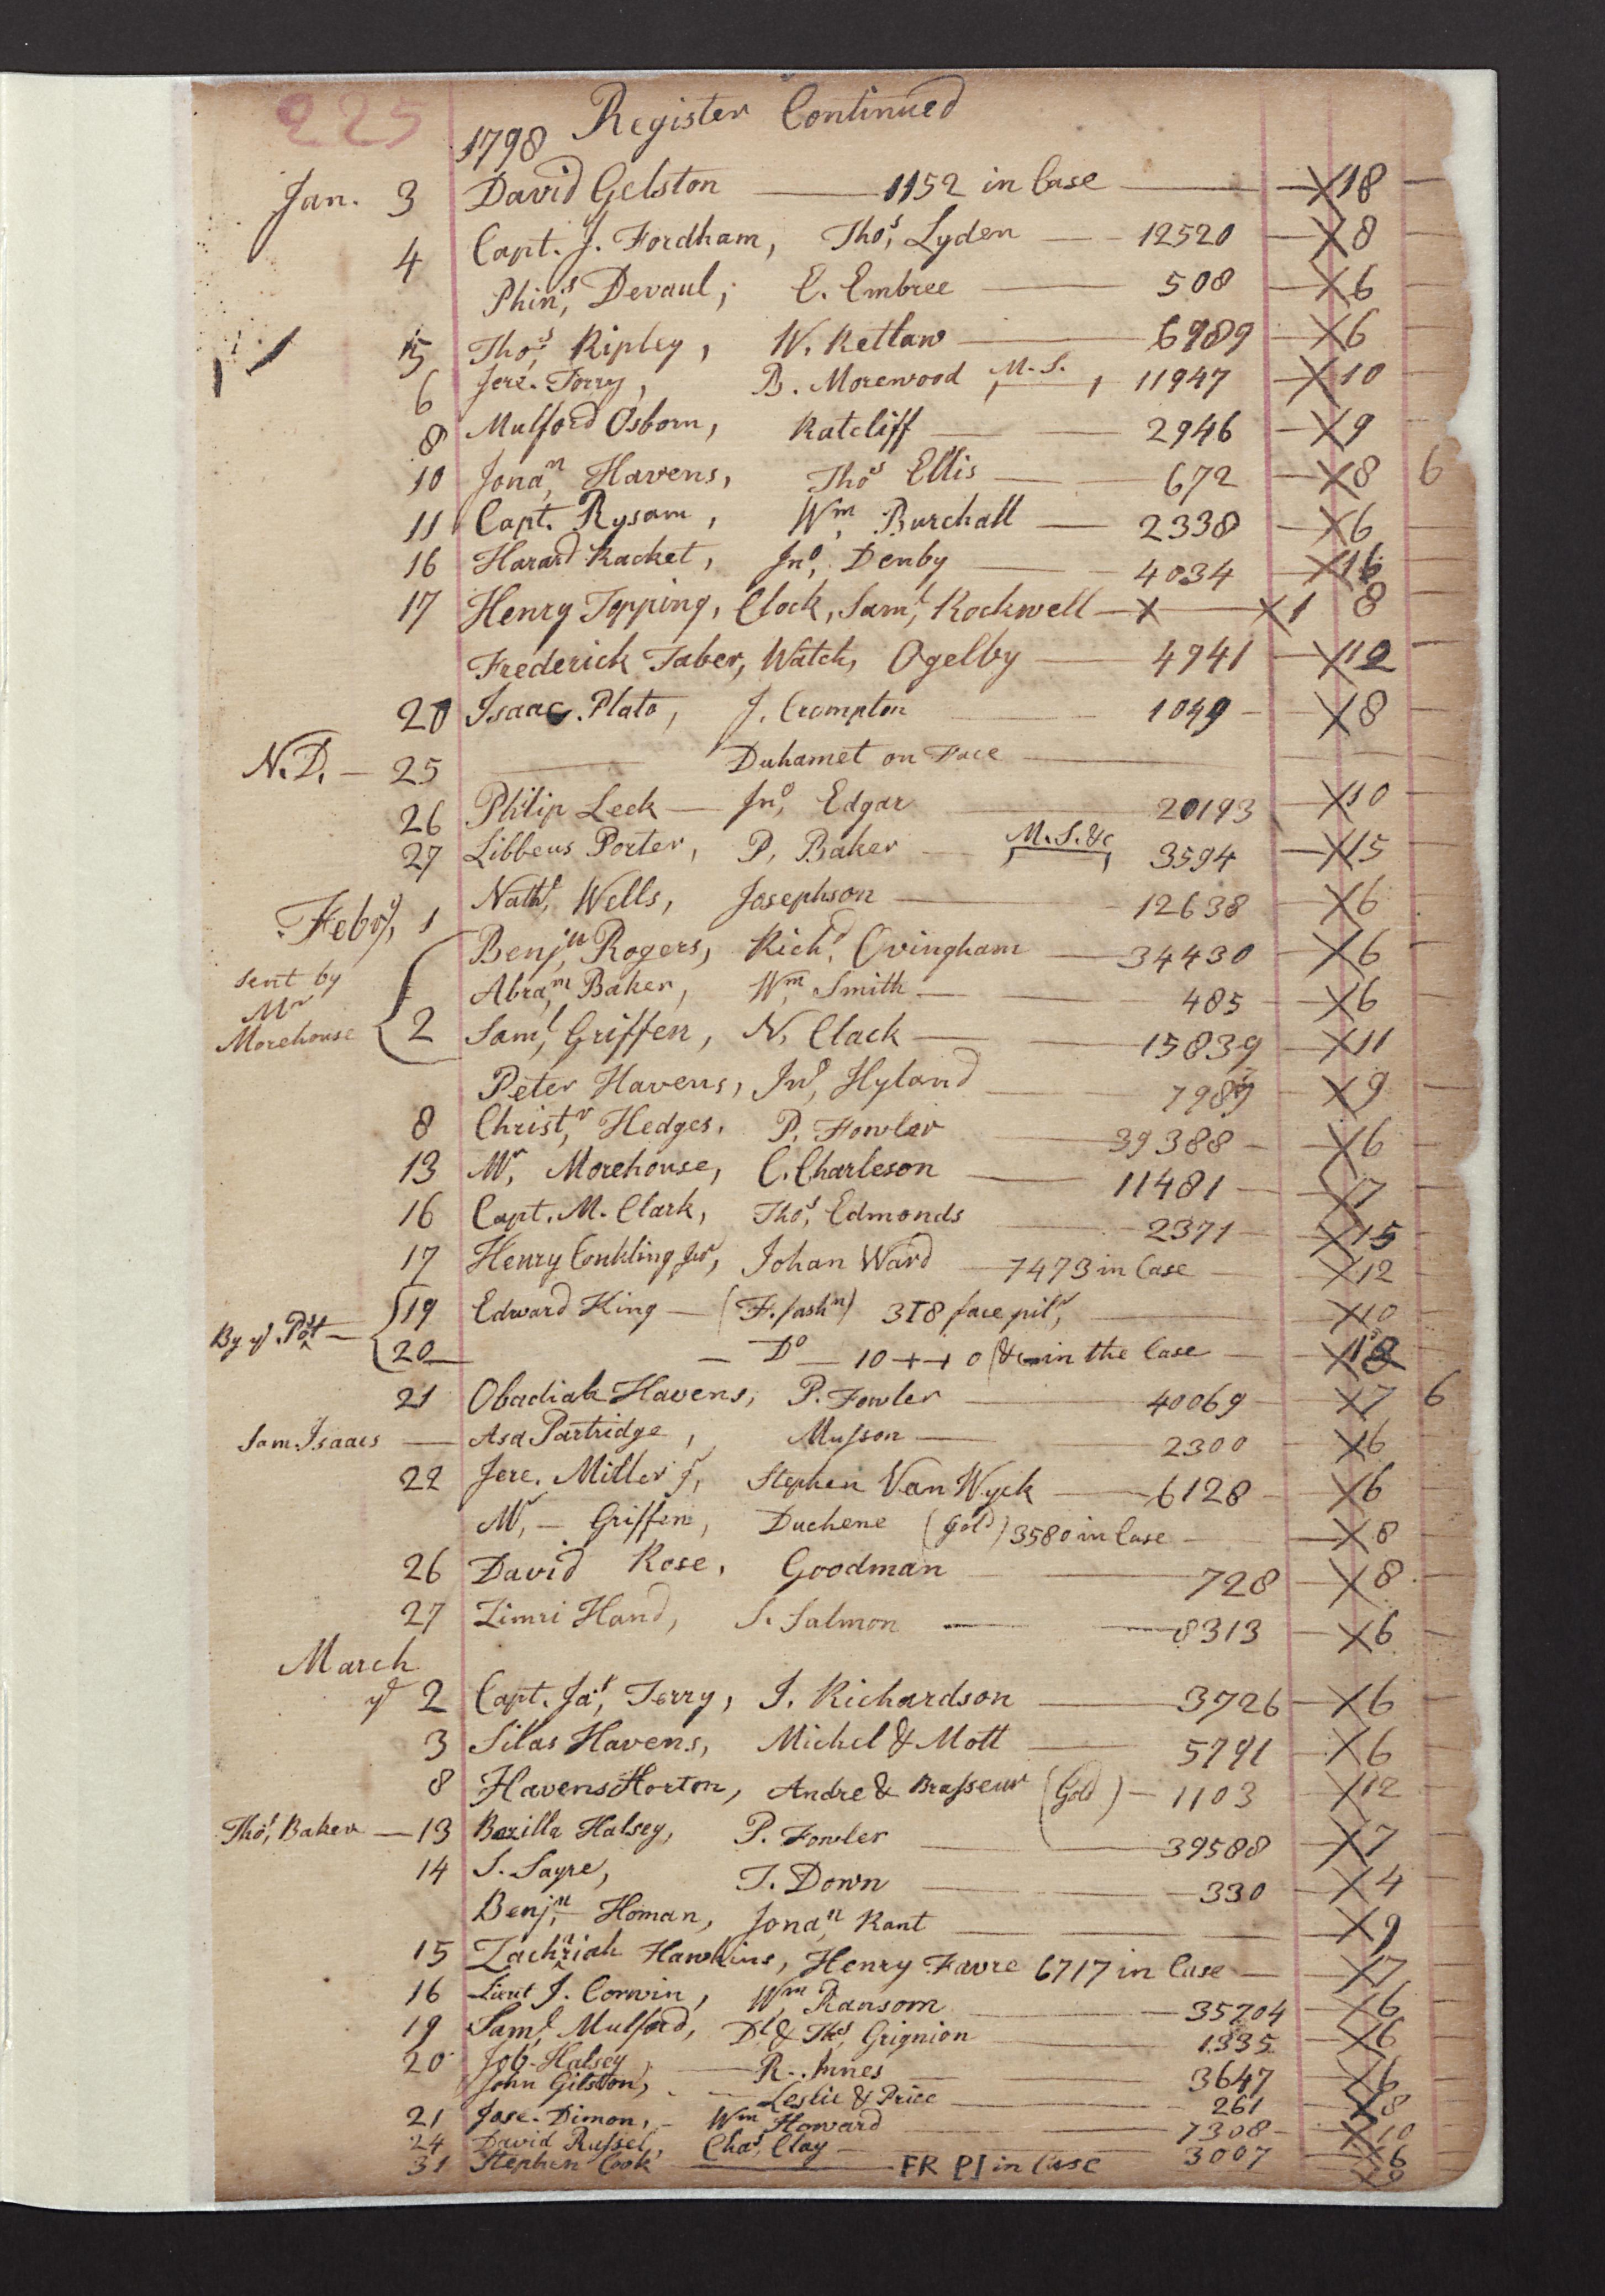 225
Register Continued
1798
Jan. 3 David Gelston — 1152 in Case — X 18
4 Capt. J. Fordham, Thos. Lyden — 12520 — X 8
Phins. Devaul, E. Embree — 508 — X 6
5 Thos. Ripley, W. Ketlaw — 6989 — X 6
6 Jere. Torry, B. Morewood M.S. 11947 — X 10
8 Mulford Osborn, Ratcliff — 2946 — X 9
10 Jonan. Havens, Thos Ellis — 672 — X 8 6
11 Capt. Rysam, Wm. Burchall — 2338 — X 6
16 Harard Racket, Jno. Denby — 4034 — X 16
17 Henry Topping, Clock, Saml. Rockwell — X — X 1 8
Frederick Taber, Watch, Ogelby — 4941 — X 12
20 Isaac Plato, J. Crompton — 1049 — X 8
N.D. — 25 — Duhamet on Face —
26 Philip Leek — Jno. Edgar 20193 X 10
27 Libbeus Porter, P. Baker — M.S. &c 3594 — X 15
Feby. 1 Nathl. Wells, Josephson — 12638 — X 6
Benjn. Rogers, Richd. Ovingham — 34430 — X 6
sent by
Mr
Morehouse
Abram. Baker, Wm. Smith — 485 — X 6
2 Saml. Griffen, N. Clack — 15839 — X 11
Peter Havens, Jno. Hyland — 7989 — X 9
8 Christr. Hedges. P. Fowler — 39388 — X 6
13 Mr. Morehouse, C. Charleson — 11481 — X 7
16 Capt. M. Clark, Thos. Edmonds — 2371 — X 15
17 Henry Conkling Jnr, Johan Ward — 7473 in Case — X 12
By ye. Post — 19 Edward King — (F. fashn) 3I8 face pilr, — X 10
20 — Do — 10 + + 0 &c in the Case — X 18
21 Obadiah Havens, P. Fowler — 40069 — X 7 6
Sam. Isaacs — Asa Partridge, Musson — 2300 — X 6
22 Jere. Miller Jr, Stephen Van Wyck — 6128 — X 6
Mr. — Griffen, Duchene (Gold) 3580 in Case — X 8
26 David Rose, Goodman — 728 — X 8
27 Zimri Hand, S. Salmon — 8313 — X 6
March
ye 2 Capt. Jas. Terry, J. Richardson — 3726 — X 6
3 Silas Havens, Michel & Mott — 5791 — X 6
8 Havens Horton, Andre & Brasseur (Gold) — 1103 X 12
Thos. Baker — 13 Bezilla Halsey, P. Fowler — 39588 — X 7
14 S. Sayre, T. Down — 330 — X 4
Benjn. Homan, Jonan. Kant — X 9
15 Zachriah Hawkins, Henry Favre 6717 in Case — X 7
16 Lieut J. Corwin, Wm. Ransom — 35704 — X 6
19 Saml. Mulford, Dl. & Thos. Grignion — 1335 — X 6
20 Job. Halsey, — R. Innes — 3647 — X 6
John Gilston, — Leslie & Price — 261 — X 8
21 Jase. Dimon, — Wm Howard — 7308 — X 10
24 David Russel, Chas. Clay — 3007 — X 6
31 Stephen Cook — FR PI in Case X 9